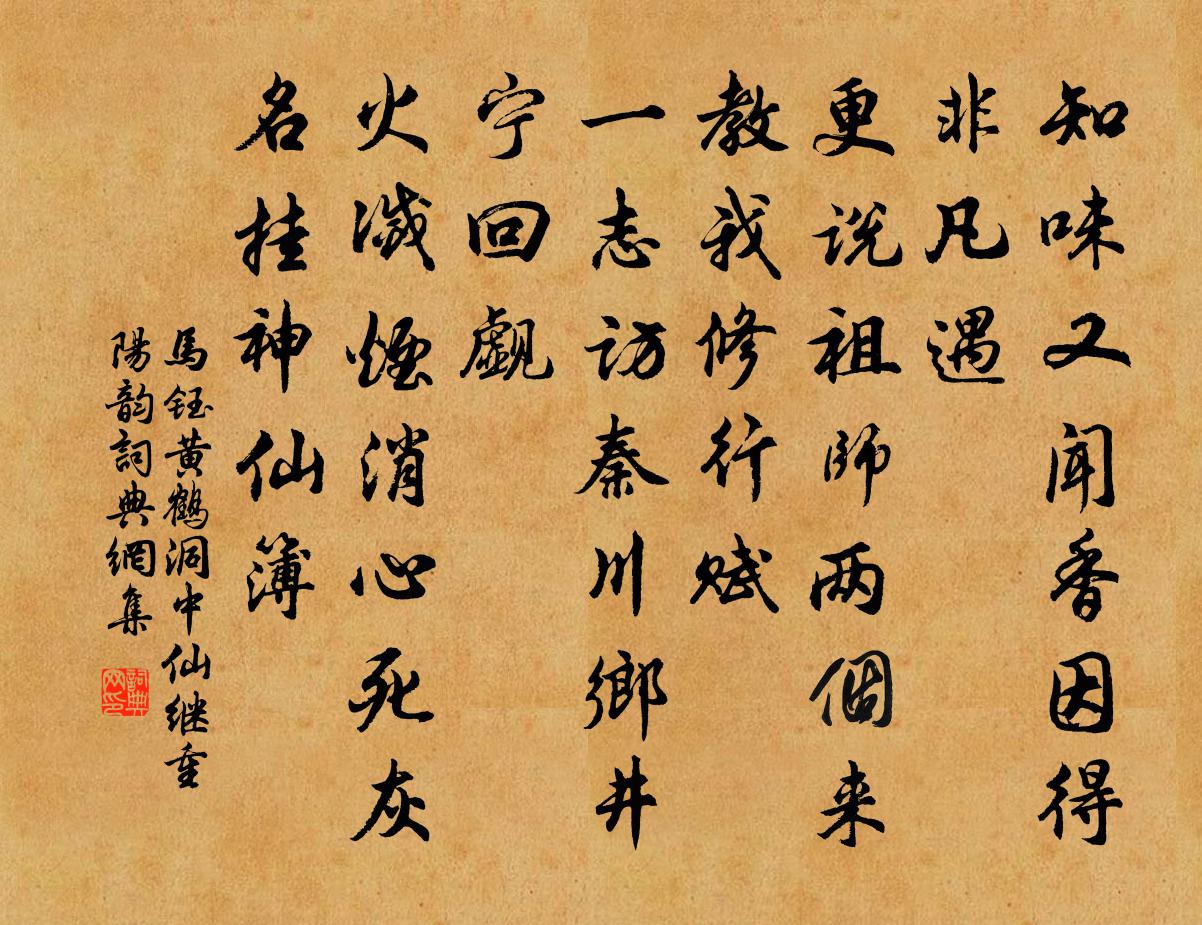 知味又闻香因得
非凡遇
更说祖師两個来
教我修行赋
一志访秦川鄉井
宁回觑
火滅煙消心死灰
名挂神仙簿
馬鈺黄鶴洞中仙继重
陽韵詞典網集
詞典
网印